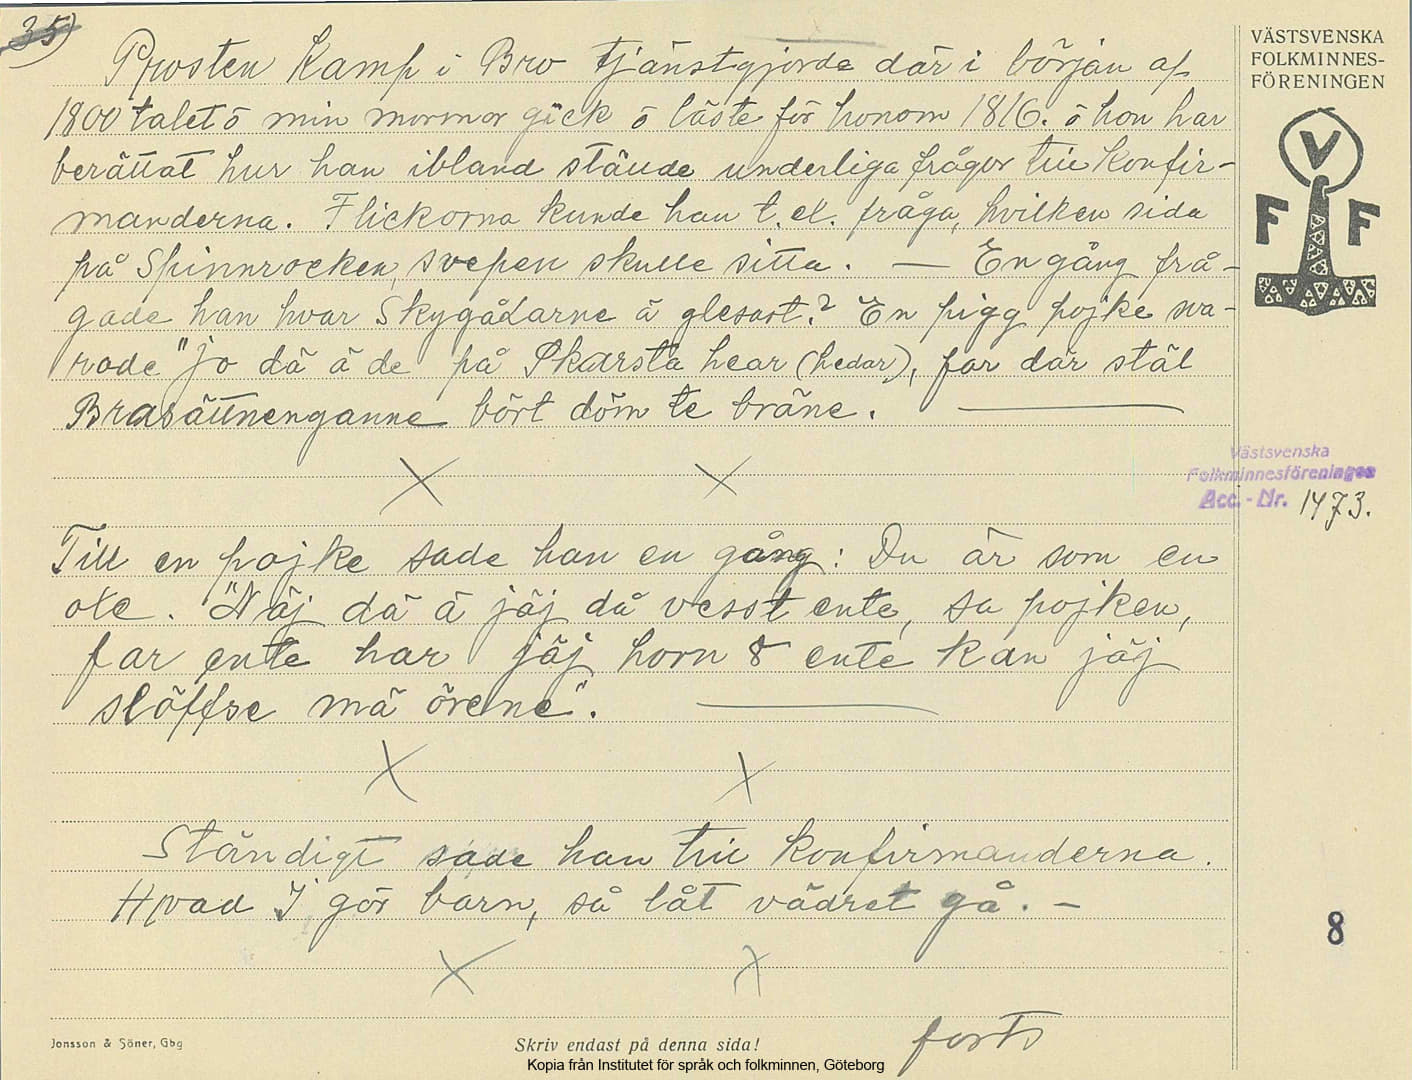 35)
Prosten Kamp i Bro tjänstgjorde där i början af
1800 talet ö min mormor gick ö läste för honom 1816. ö hon har
berättat hur han ibland stäude underliga frågor till Konfir-
manderna. Flickorna kunde han t. ex. fråga, hvilken sida
på Spinnrocken, svepen skulle sitta. — En gång frå-
gade han hvar Skygårarne ä glesast? En pigg pojke sva-
rade "jo dä ä de på Skarsta hear (hedar), far där stäl
Brasättnenganne bört döm te bräne. —
X X
Till en pojke sade han en gång: Du är som en
oxe. "Näj dä ä jäj då vesst ente, sa pojken,
far ente har jäj horn å ente kan jäj
slöffse mä örene". —
X X
Ständigt sade han till konfirmanderna.
Hvad I gör barn, så låt vädret gå. –
X X
forts
VÄSTSVENSKA
FOLKMINNES-
FÖRENINGEN
V
F F
Västsvenska
Folkminnesföreningen
Acc. - Nr. 1473.
8
Jonsson & Söner, Gbg
Skriv endast på denna sida!
Kopia från Institutet för språk och folkminnen, Göteborg